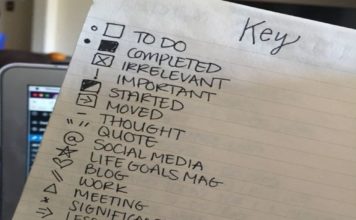 Key
TO DO
COMPLETED
IRRELEVANT
! IMPORTANT
STARTED
> MOVED
" " THOUGHT
" " QUOTE
@ SOCIAL MEDIA
LIFE GOALS MAG
BLOG
WORK
MEETING